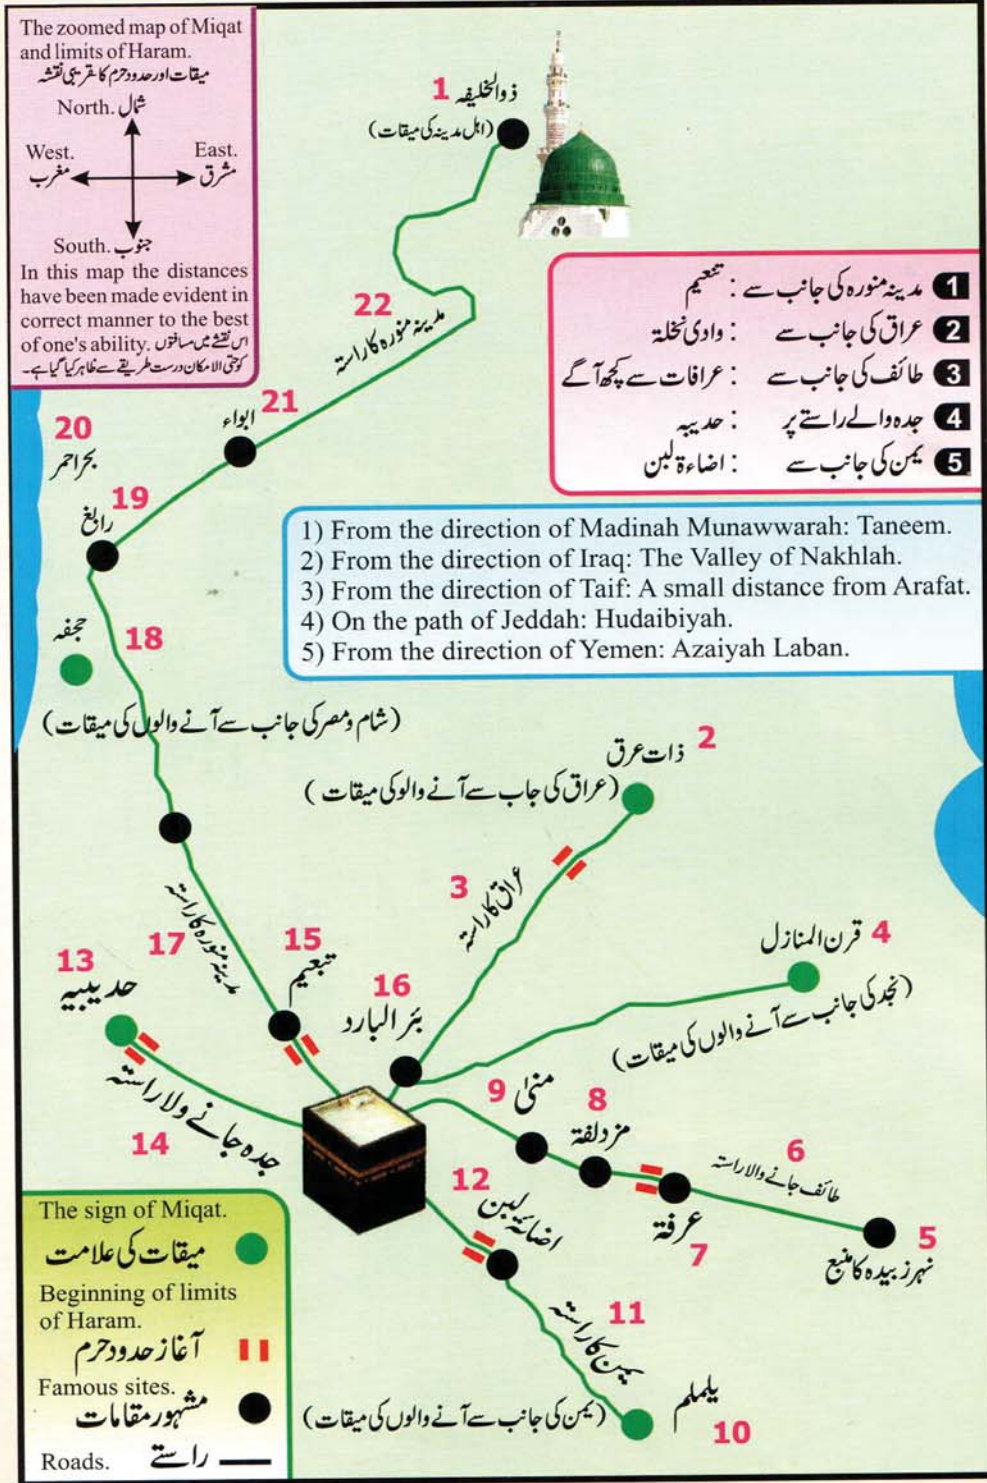 The zoomed map of Miqat
and limits of Haram.
میقات اور حدود حرم کا قریبی نقشہ
North. شمال
West.
مغرب
East.
مشرق
South. جنوب
In this map the distances
have been made evident in
correct manner to the best
of one's ability. اس نقشے میں مسافتوں
کو حتی الامکان درست طریقے سے ظاہر کیا گیا ہے۔
1 ذوالخلیفہ
(اہل مدینہ کی میقات)
22
مدینہ منورہ کا راستہ
1 مدینہ منورہ کی جانب سے : تنعیم
2 عراق کی جانب سے : وادی نخلۃ
3 طائف کی جانب سے : عرافات سے کچھ آگے
4 جدہ والے راستے پر : حدیبہ
5 یمن کی جانب سے : اضاءۃ لبن
21
ابواء
20
بحر احمر
19
رابغ
1) From the direction of Madinah Munawwarah: Taneem.
2) From the direction of Iraq: The Valley of Nakhlah.
3) From the direction of Taif: A small distance from Arafat.
4) On the path of Jeddah: Hudaibiyah.
5) From the direction of Yemen: Azaiyah Laban.
18
جحفہ
(شام ومصر کی جانب سے آنے والوں کی میقات)
2 ذات عرق
(عراق کی جاب سے آنے والو کی میقات)
3
عراق کا راستہ
4 قرن المنازل
(نجد کی جانب سے آنے والوں کی میقات)
17
مدینہ منورہ کا راستہ
15
تبعیم
16
بئر البارد
13
حدیبیہ
جدہ جانے ولا راستہ
14
9 منیٰ
8
مزدلفۃ
6
طائف جانے والا راستہ
عرفۃ
7
5
نہر زبیدہ کا منبع
12
اضائۃ لبن
11
یمن کا راستہ
یلملم
10
(یمن کی جانب سے آنے والوں کی میقات)
The sign of Miqat.
میقات کی علامت
Beginning of limits
of Haram.
آغاز حدود حرم
Famous sites.
مشہور مقامات
Roads. راستے